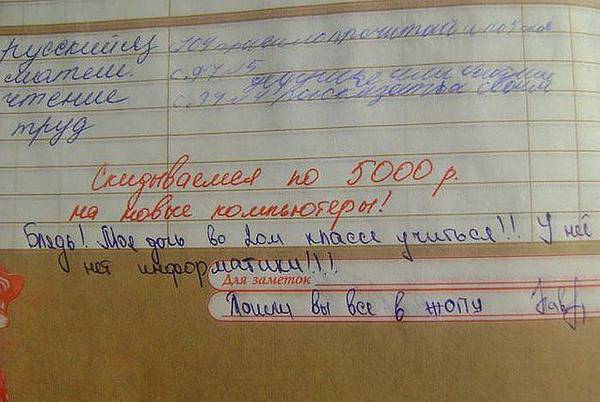 русский яз 104 правило прочитать и
матем. с.97 №5
чтение с.34 №4 рассказать о своём
труд
Скидываемся по 5000 р.
на новые компьютеры!
Блядь! Моя дочь во 2ом классе учиться!! У неё
нет информатики!!!!
Для заметок
Пошли вы все в жопу